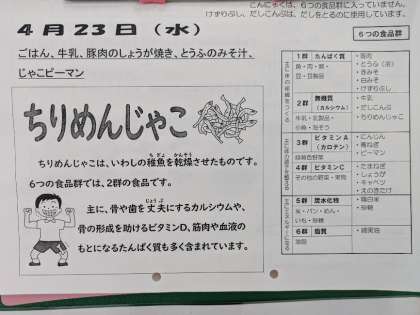 こんにゃくは、6つの食品群に入っていません。
けずりぶし、だしこんぶは、だしをとるのに使用しています。
4月23日（水）
ごはん、牛乳、豚肉のしょうが焼き、とうふのみそ汁、
じゃこピーマン
ちりめんじゃこ
ちりめんじゃこは、いわしの稚魚を乾燥させたものです。
6つの食品群では、2群の食品です。
主に、骨や歯を丈夫にするカルシウムや、
骨の形成を助けるビタミンD、筋肉や血液の
もとになるたんぱく質も多く含まれています。
6つの食品群
1群 たんぱく質
魚・肉・卵・
豆・豆製品
・豚肉
・とうふ
・赤みそ
・白みそ
・けずりぶし
2群 無機質
（カルシウム）
牛乳・乳製品・
小魚・海そう
・牛乳
・だしこんぶ
・ちりめんじゃこ
3群 ビタミンA
（カロテン）
緑黄色野菜
・にんじん
・青ねぎ
・ピーマン
4群 ビタミンC
その他の野菜・果物
・たまねぎ
・しょうが
・キャベツ
・えのきたけ
5群 炭水化物
米・パン・めん・
いも・砂糖
・精白米
・砂糖
6群 脂質
油脂
・綿実油